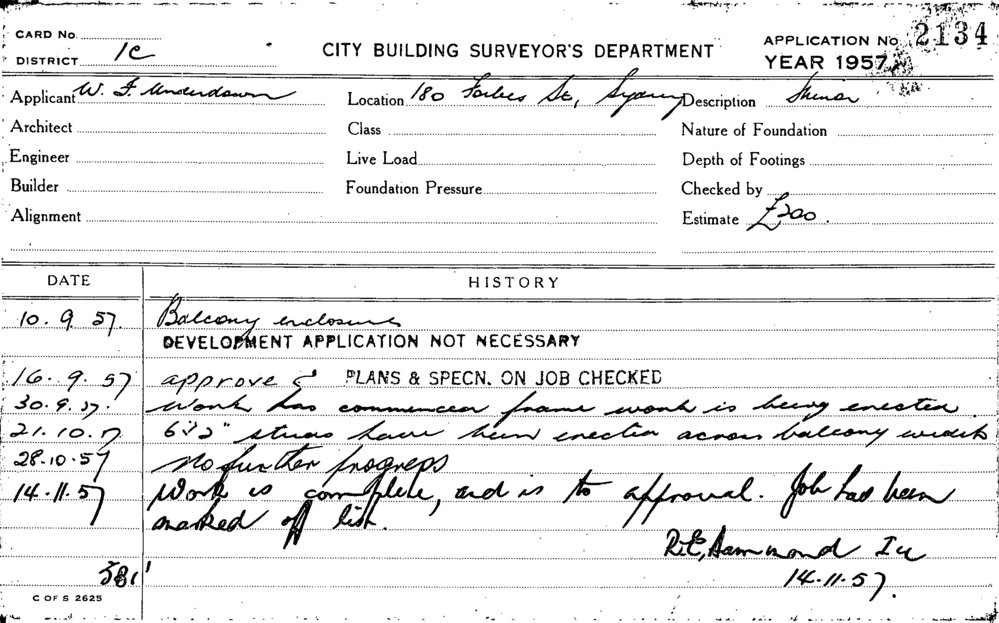 CARD No.
DISTRICT 1C
CITY BUILDING SURVEYOR'S DEPARTMENT
APPLICATION No. 2134
YEAR 1957
Applicant W. F. Underdown Location 180 Forbes St, Sydney Description
Architect Class Nature of Foundation
Engineer Live Load Depth of Footings
Builder Foundation Pressure Checked by
Alignment Estimate £200.
DATE HISTORY
10.9.57. Balcony enclosure
DEVELOPMENT APPLICATION NOT NECESSARY
16.9.57 approve PLANS & SPECN. ON JOB CHECKED
30.9.57. Work has commenced frame work is being erected.
21.10.57 studs have been erected across balcony width
28.10.57 No further progress
14.11.57 Work is complete, and is to approval. Job has been
marked off list.
Hammond
14.11.57.
C OF S 2625